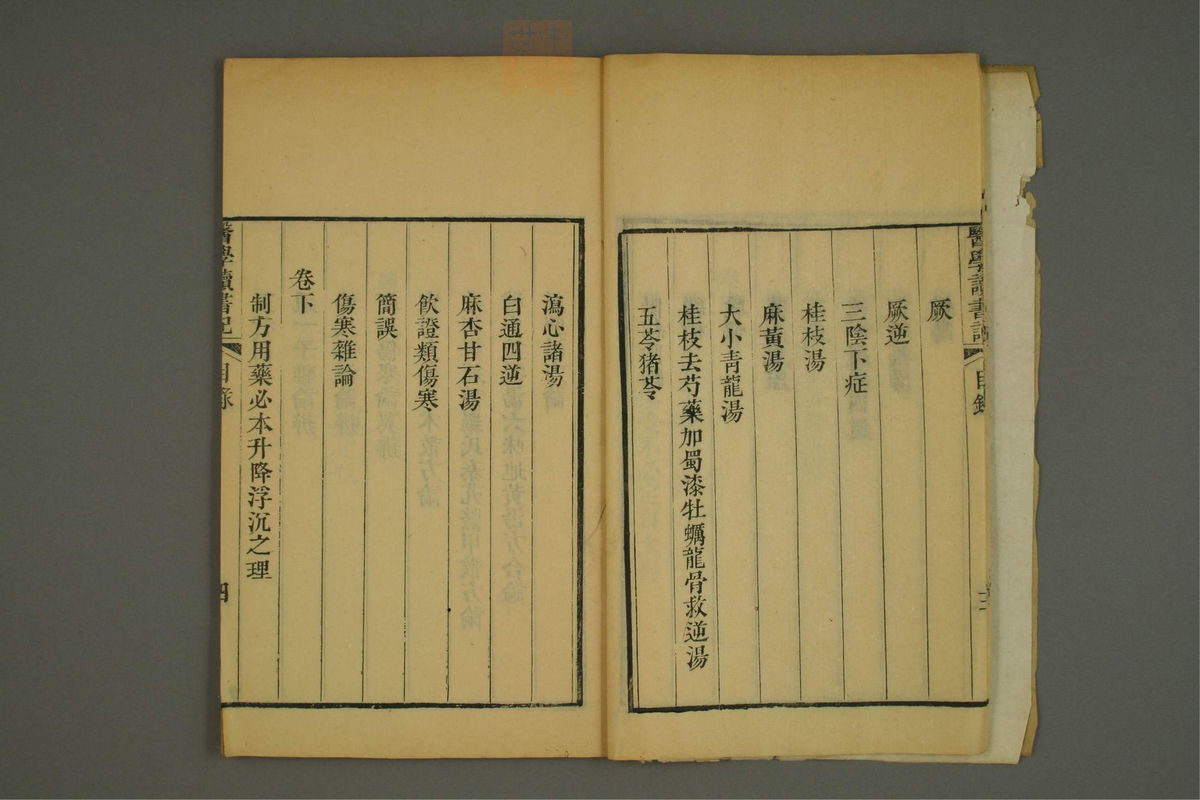 醫學讀書記
目錄
三
厥
厥逆
三陰下症
桂枝湯
麻黃湯
大小青龍湯
桂枝去芍藥加蜀漆牡蠣龍骨救逆湯
五苓猪苓
瀉心諸湯
白通四逆
麻杏甘石湯
飲證類傷寒
簡誤
傷寒雜論
卷下
制方用藥必本升降浮沉之理
醫學讀書記
目錄
四